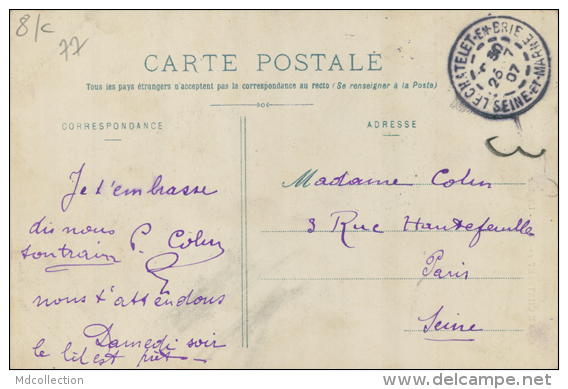 8/c
77
CARTE POSTALE
Tous les pays étrangers n'acceptent pas la correspondance au recto (Se renseigner à la Poste)
CORRESPONDANCE
ADRESSE
LE CHATELET-EN-BRIE
SEINE-ET-MARNE
07
Je t'embrasse
dis nous
ton train P. Colin
nous t'attendons
Samedi soir
le lit est prêt
Madame Colin
3 Rue Hautefeuille
Paris
Seine
Mdcollection
www.delcampe.net